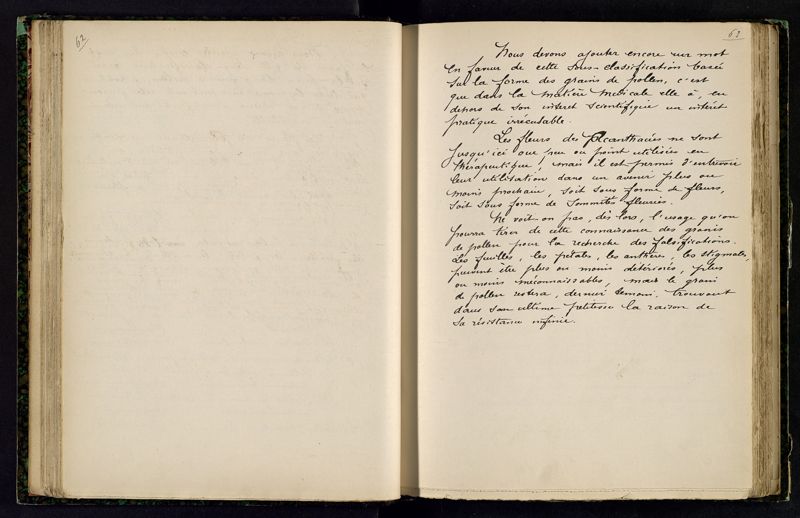 62
63
Nous devons ajouter encore un mot
en faveur de cette sous-classification basée
sur la forme des grains de pollen, c'est
que dans la matière médicale elle a, en
dehors de son intérêt scientifique un intérêt
pratique irrécusable.
Les fleurs des Acanthacées ne sont
jusqu'ici que peu ou point utilisées en
thérapeutique, mais il est permis d'entrevoir
leur utilisation dans un avenir plus ou
moins prochain, soit sous forme de fleurs,
soit sous forme de sommités fleuries.
Ne voit on pas, dès lors, l'usage qu'on
pourra tirer de cette connaissance des grains
de pollen pour la recherche des falsifications.
Les feuilles, les pétales, les anthères, les stigmates,
peuvent être plus ou moins détériorés, plus
ou moins méconnaissables, mais le grain
de pollen restera, dernier témoin, trouvant
dans son ultime petitesse la raison de
sa résistance infinie.